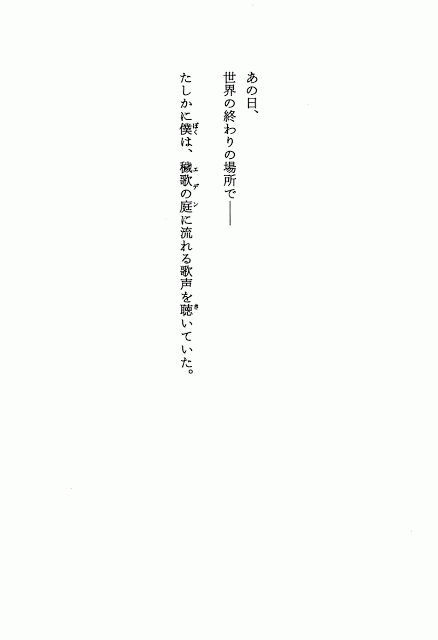 あの日、
世界の終わりの場所で――
たしかに僕は、穢歌の庭に流れる歌声を聴いていた。